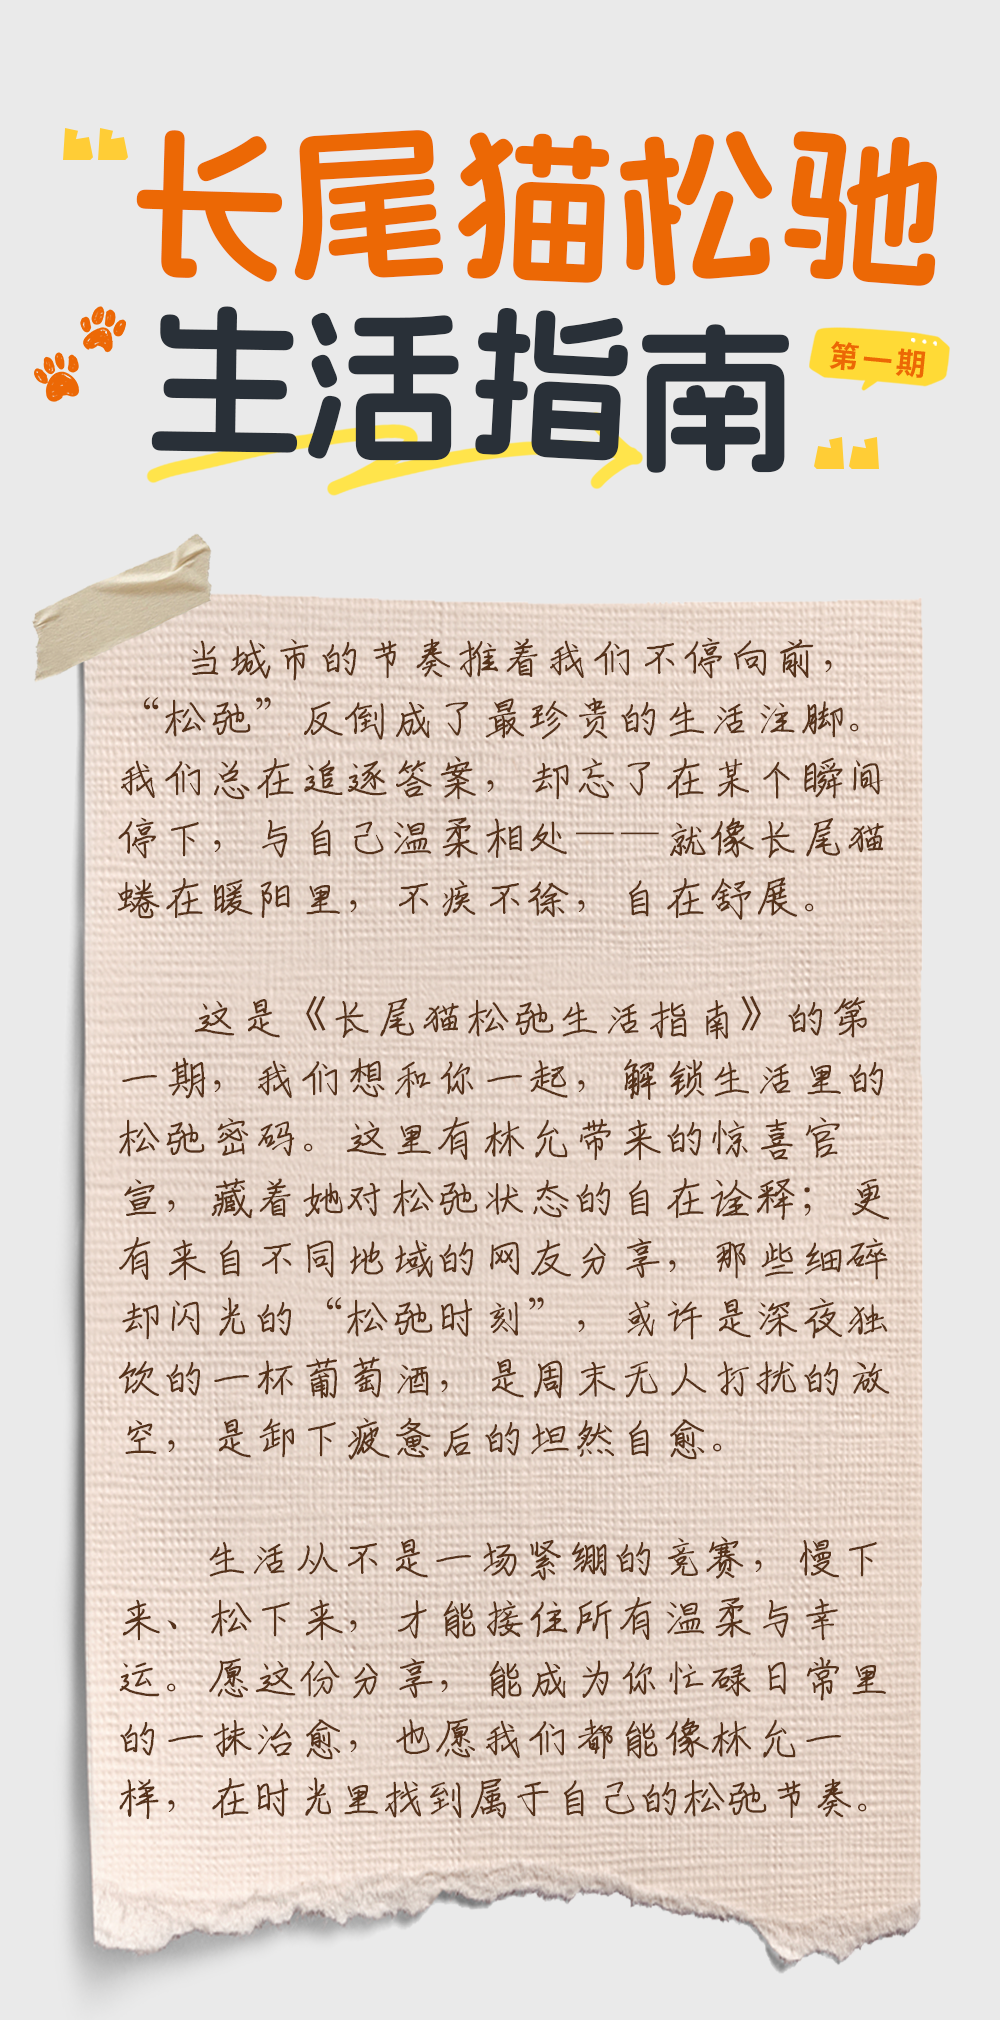 长尾猫松驰
生活指南
第一期
当城市的节奏推着我们不停向前，
“松弛”反倒成了最珍贵的生活注脚。
我们总在追逐答案，却忘了在某个瞬间
停下，与自己温柔相处——就像长尾猫
蜷在暖阳里，不疾不徐，自在舒展。
这是《长尾猫松弛生活指南》的第
一期，我们想和你一起，解锁生活里的
松弛密码。这里有林允带来的惊喜官
宣，藏着她对松弛状态的自在诠释；更
有来自不同地域的网友分享，那些细碎
却闪光的“松弛时刻”，或许是深夜独
饮的一杯葡萄酒，是周末无人打扰的放
空，是卸下疲惫后的坦然自愈。
生活从不是一场紧绷的竞赛，慢下
来、松下来，才能接住所有温柔与幸
运。愿这份分享，能成为你忙碌日常里
的一抹治愈，也愿我们都能像林允一
样，在时光里找到属于自己的松弛节奏。